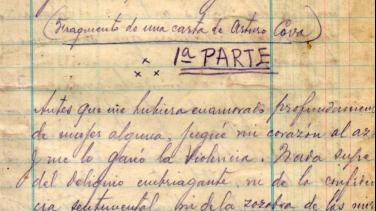 (Fragmento de una carta de Arturo Cova)
1ª PARTE
Antes que me hubiera enamorado profundamen
de mujer alguna, jugué mi corazón al az
y me lo ganó la Violencia. Nada supe
del deliquio embriagante, ni de la confiden
cia sentimental, ni de la zozobra de las mir